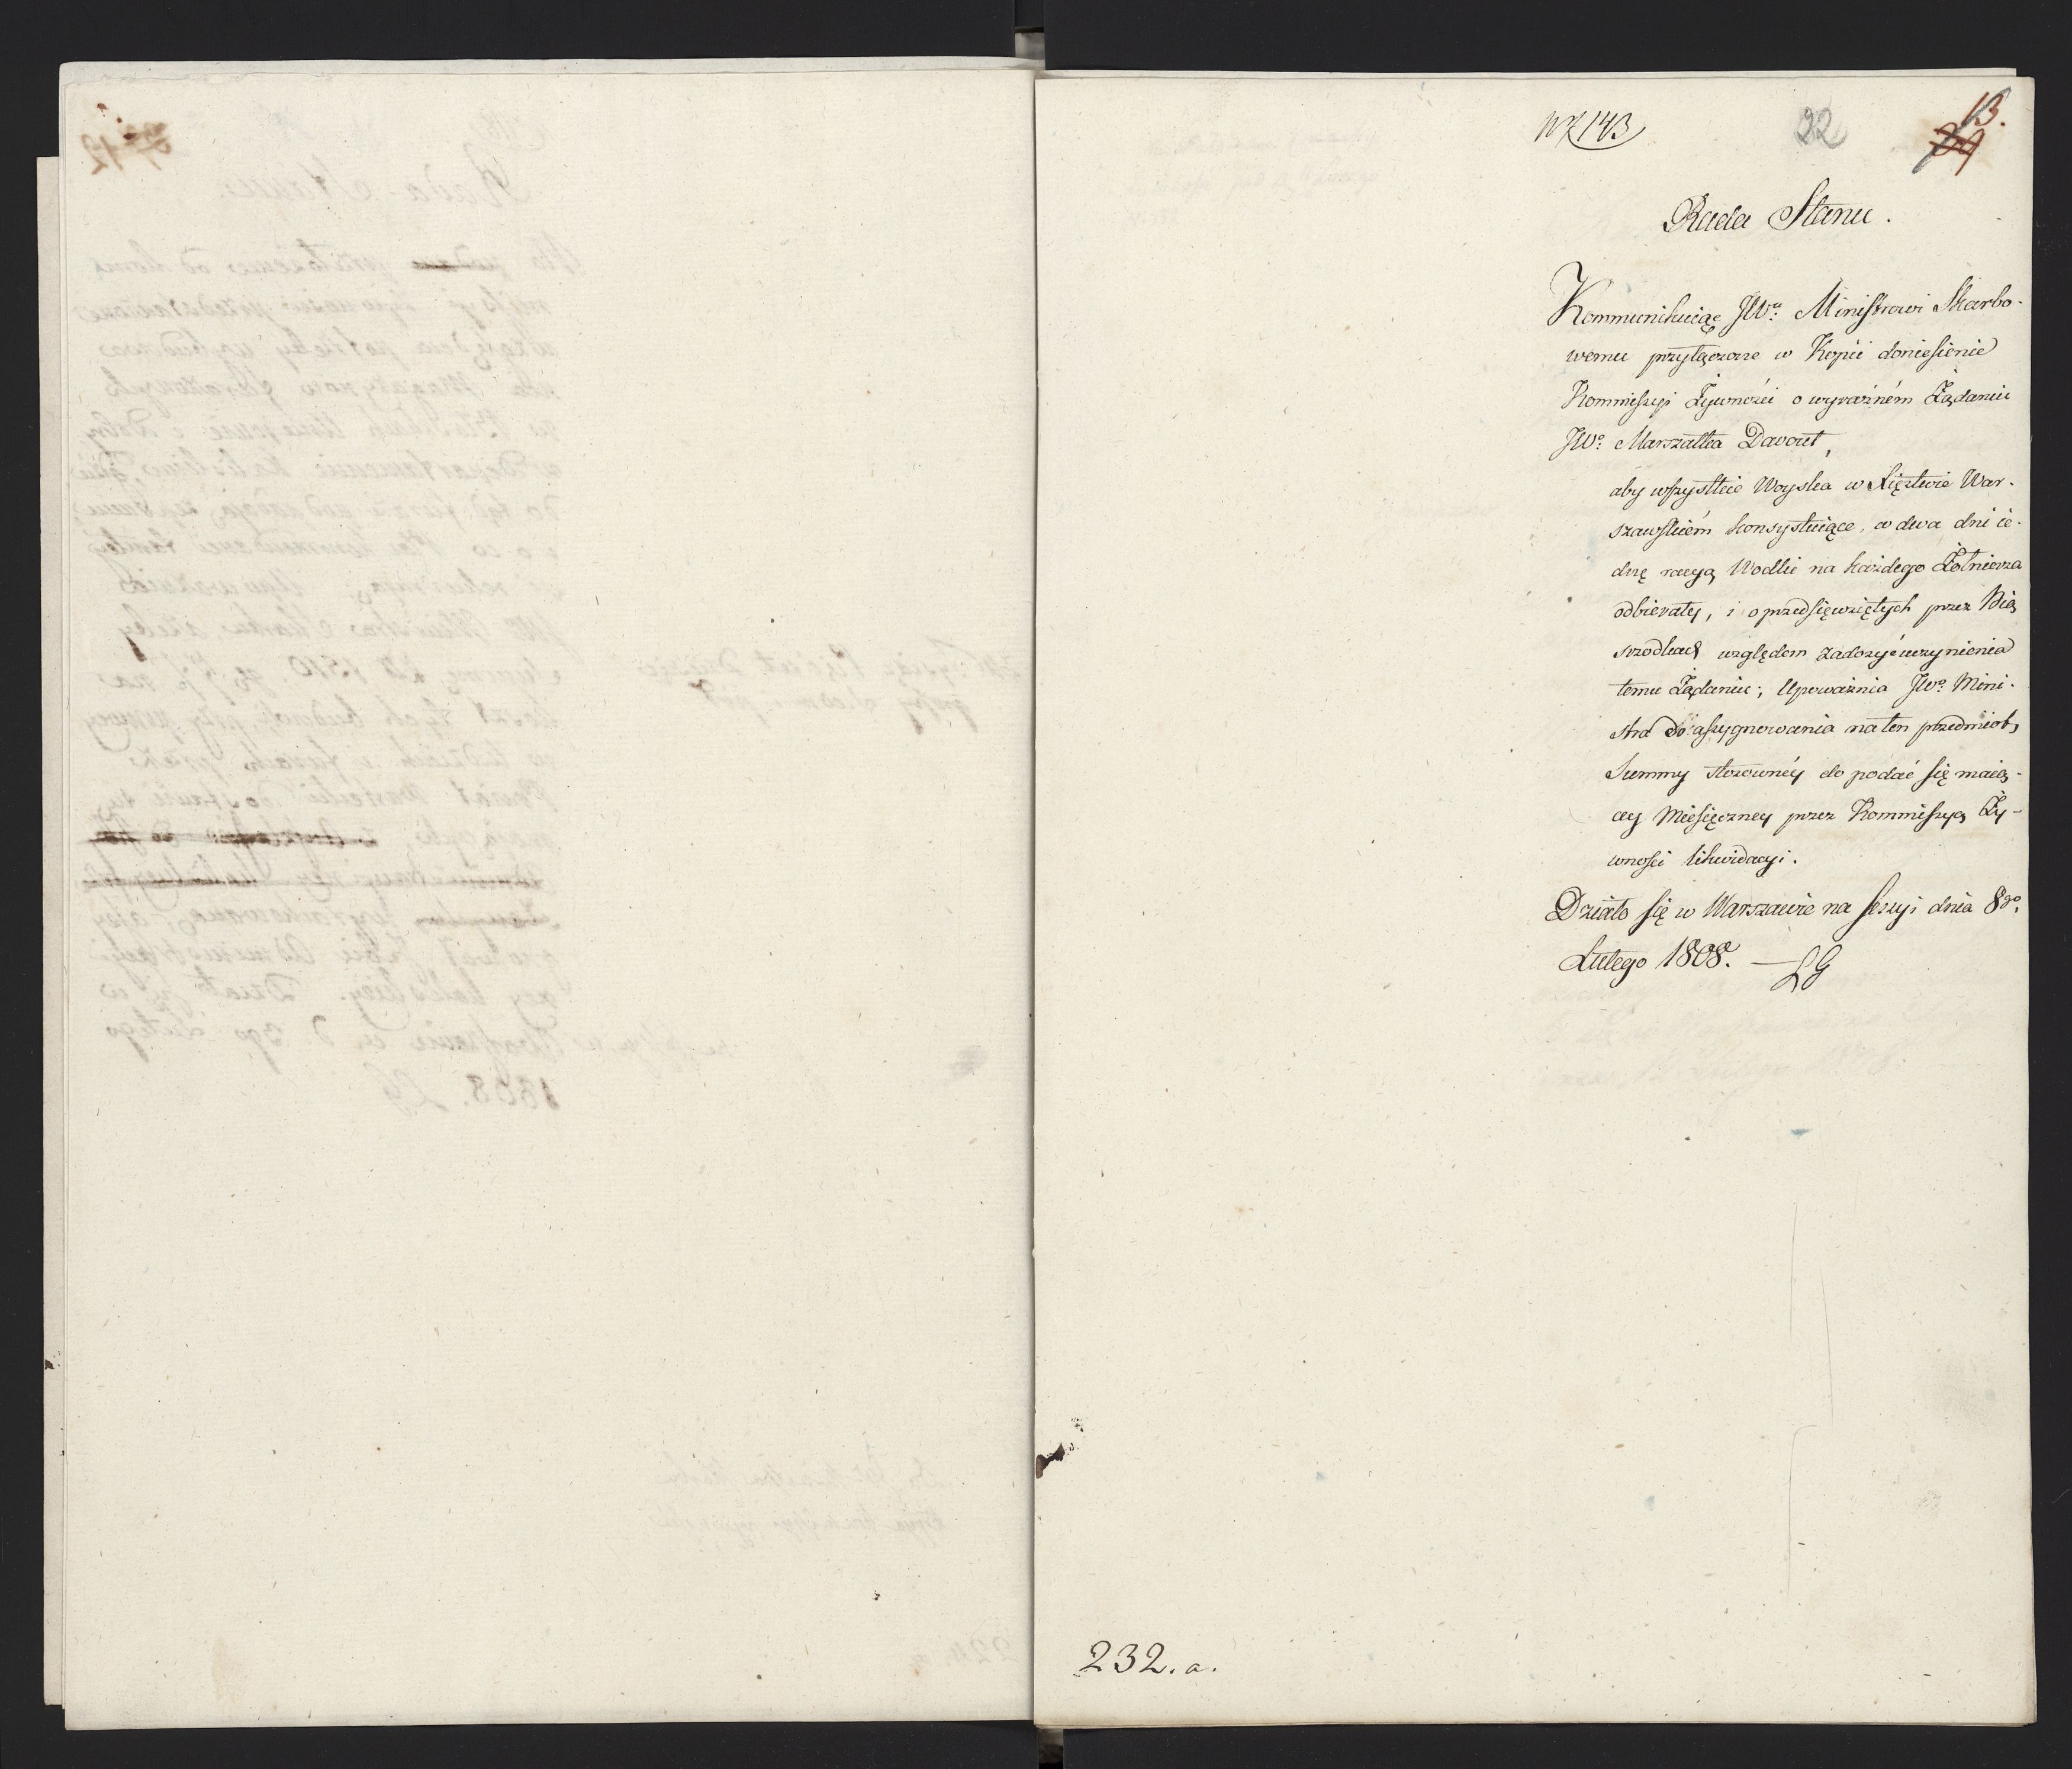 N 143
22
13.
Rada Stanu.
Kommunikuiąc JWu: Ministrowi Skarbo-
wemu przyłączone w Kopii doniesienie
Kommissyi Żywności o wyraźném Żądaniu
JWo: Marszałka Davout,
aby wszystkie Woyska w Xięztwie War-
szawskiém konsystuiące, w dwa dni ie-
dnę racyą Wodki na każdego Żołnierza
odbierały, i o przedsięwziętych przez Nią
srzodkach względem zadosyćuczynienia
temu Żądaniu; Upoważnia JWo Mini-
stra do assygnowania na ten przedmiot,
Summy stosownéy do podać się maią-
cey Miesięczney przez Kommissyą Ży-
wności likwidacyi.
Działo się w Warszawie na sessyi dnia 8go.
Lutego 1808. — LG
232. a.